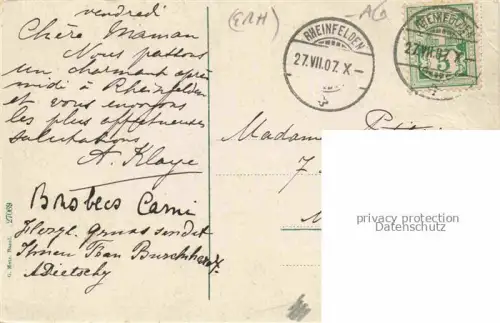 vendredi
Chère Maman
Nous passons
un charmant après
midi à Rheinfelden
et vous envoyons
les plus affectueuses
salutations
A. Klaye
Brobecs Cami
Herzl. Gruss sendet
Ihnen Frau Burckhardt.
A Dietschy
(ERH)
AG
RHEINFELDEN
27.VII.07.X-
RHEINFELDEN
27.VII.07.X-
5
Madame
7
privacy protection
27069